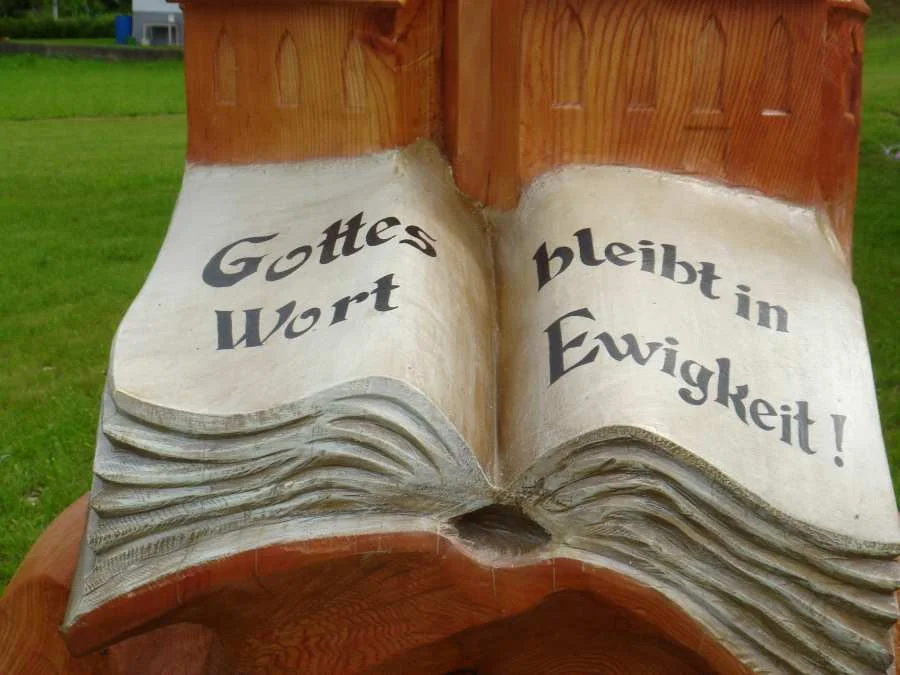 Gottes
Wort
bleibt in
Ewigkeit!